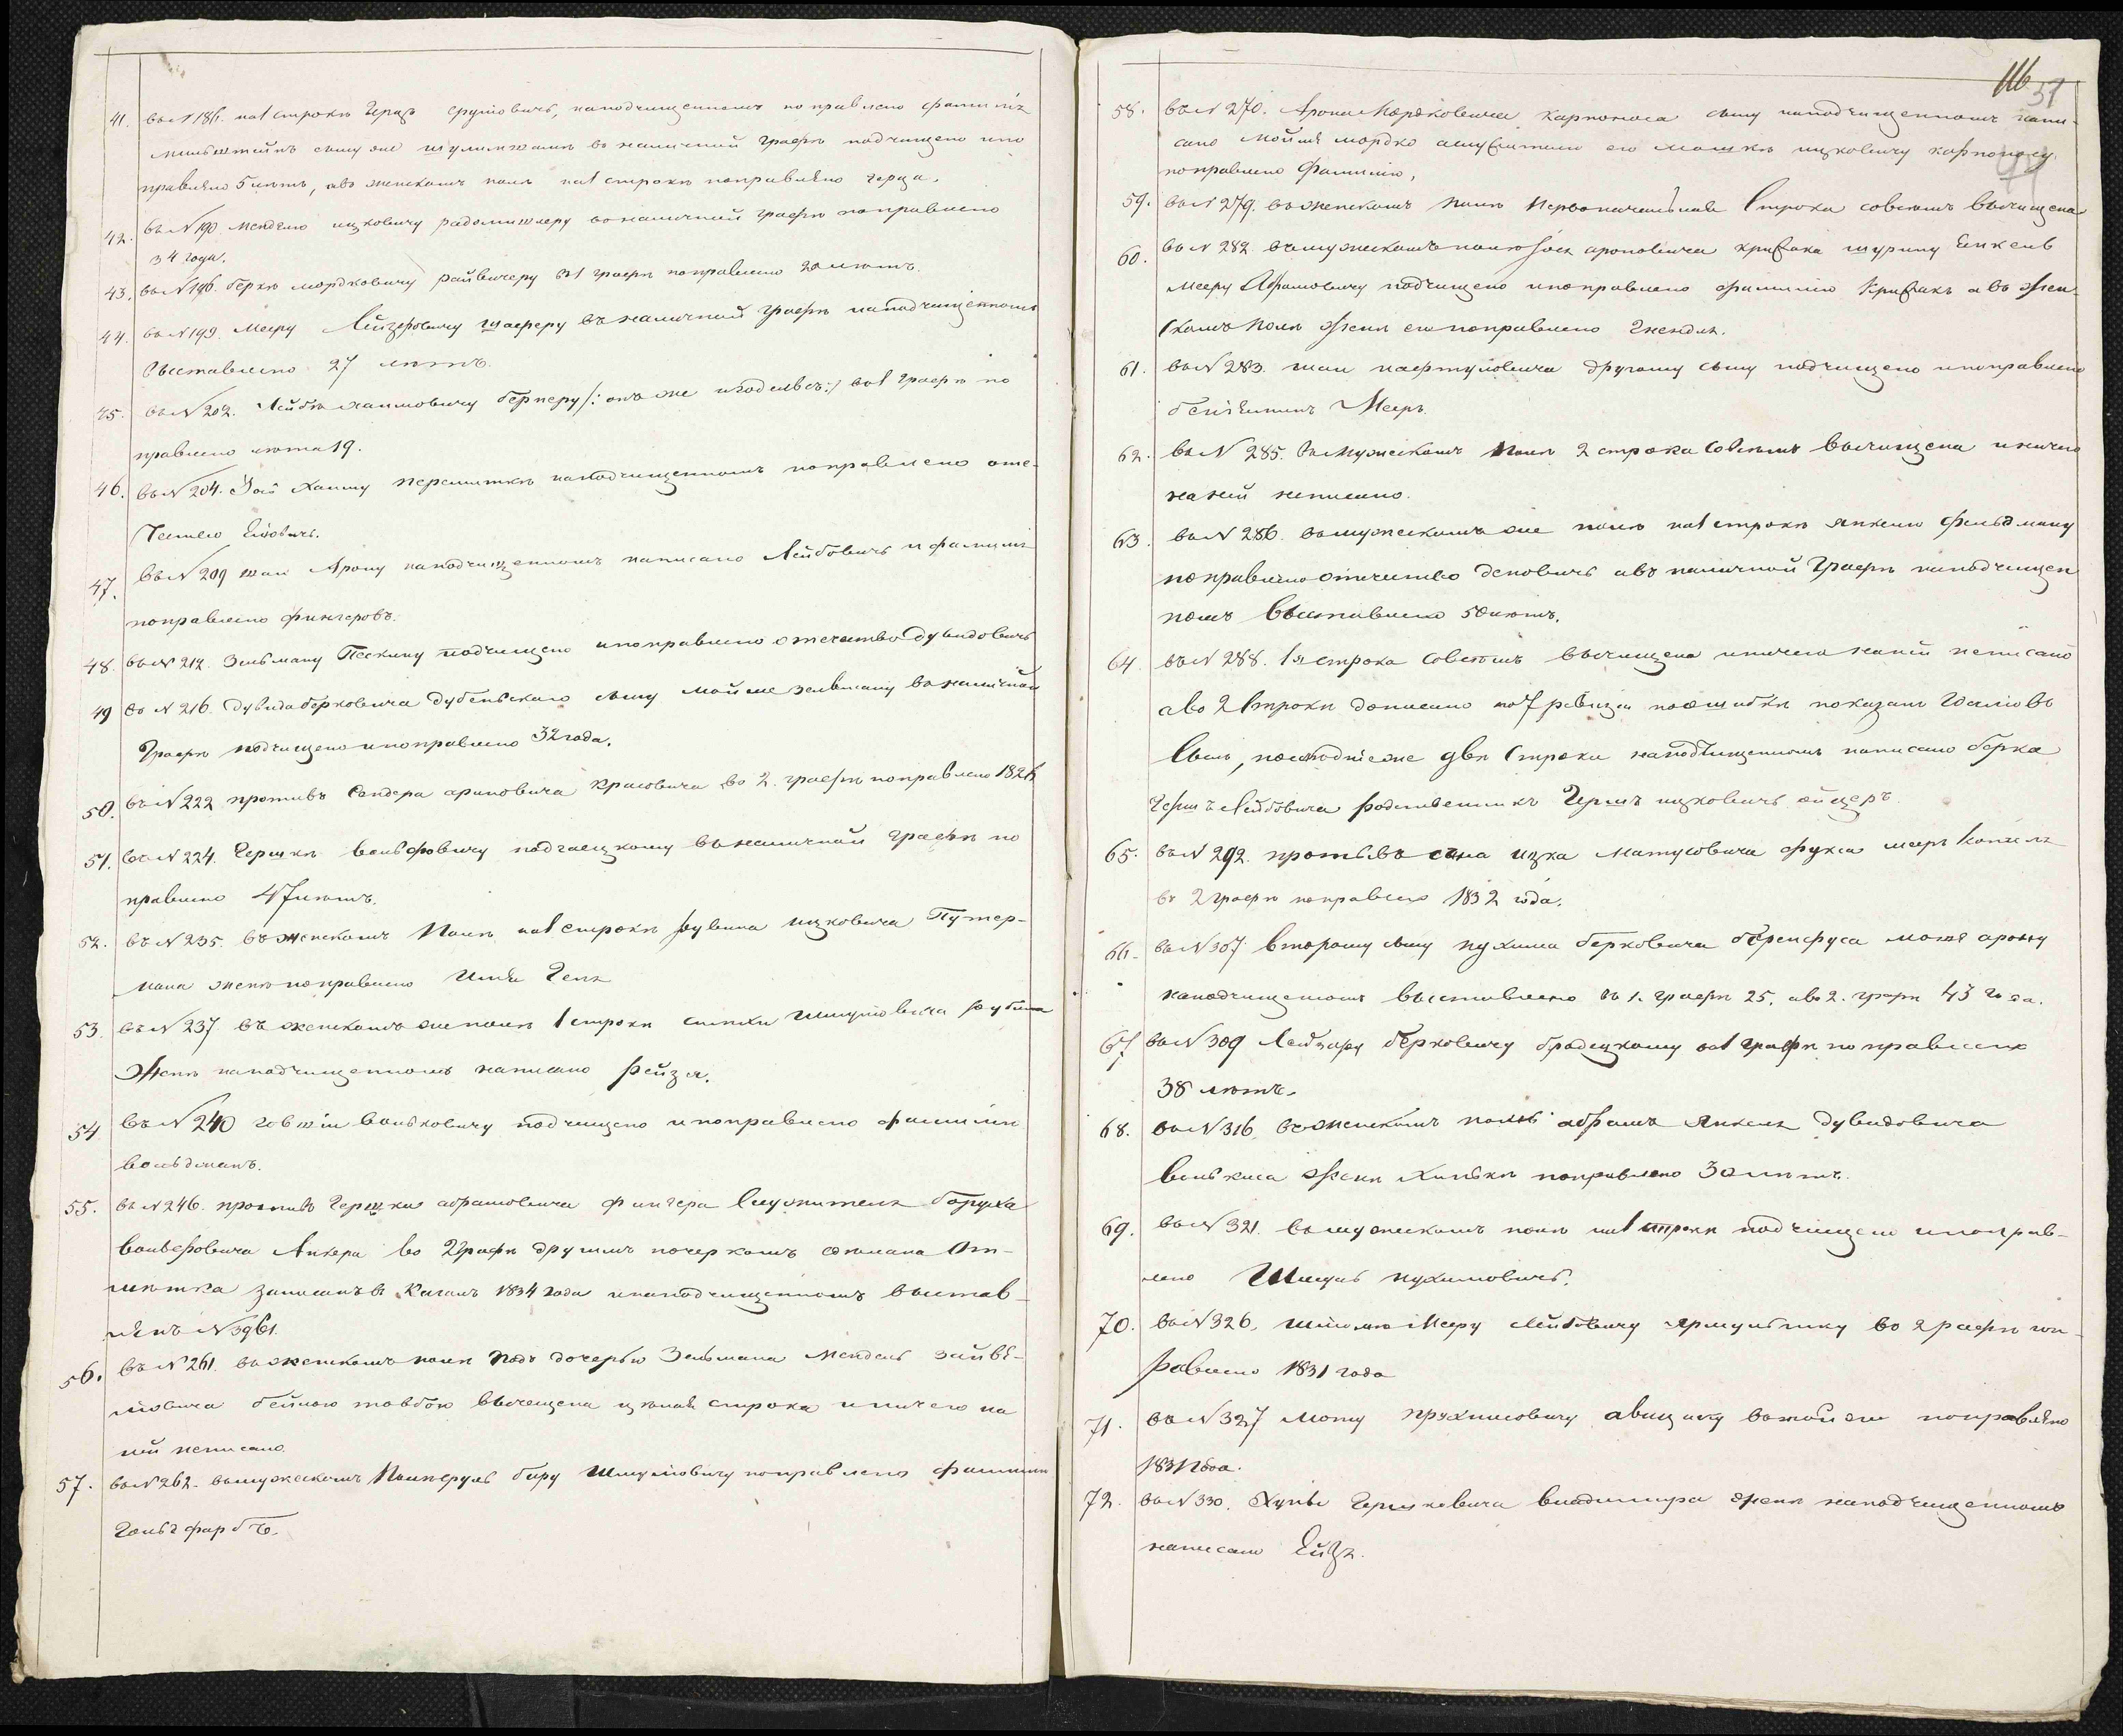 41. въ N 186. на 1 строкѣ Герцъ Срулiовичъ, наподчищенномъ поправлено фамилiя
сыну же Шулимъ въ наличной графѣ подчищено и по
правлено 5 лѣтъ, а въ женскомъ полѣ на 1 строкѣ поправлено Герца.
42. въ N 190 Менделю Ицковичу Радомишлеру въ наличной графѣ поправлено
34 года.
43. въ N 196. Беркѣ Мордковичу Райвичеру въ 1 графѣ поправлено 20 лѣтъ.
44. въ N 199. Мееру Лейзеровичу Шаферу въ наличной графѣ наподчищенномъ
выставлено 27 лѣтъ.
45. въ N 202. Лейбѣ Хаимовичу Бернеру /: онъ же :/ въ 1 графѣ по
правлено лѣта 19.
46. въ N 204. Хаиму наподчищенномъ поправлено оте-
чество
47. въ N 209 Арону наподчищенномъ написано Лейбовичъ и фамилiя
поправлено Фингеровъ.
48. въ N 212. Зельману Пескину подчищено и поправлено отечество Дувидовичъ
49 въ N 216. Дувида Берковича Дубенскаго сыну Мойше Зельману въ наличной
графѣ подчищено и поправлено 32 года.
50. въ N 222 противъ Сендера Ароновича Красовича во 2. графѣ поправлено 1826
51. въ N 224. Гершкѣ Вольфовичу Подгаецкому въ наличной графѣ по
правлено 47 лѣтъ.
52. въ N 235. въ женскомъ полѣ на 1 строкѣ Рувина Ицковича Путер-
мана женѣ поправлено имя Геня
53. въ N 237 въ женскомъ же полѣ 1 строкѣ Шмулiовича Рубина
женѣ наподчищенномъ написано Рейзя.
54 въ N 240 Говшiи Вольковичу подчищено и поправлено фамилiи
Вольдманъ.
55. въ N 246. противъ Гершки Абрамовича Фингера служителя Боруха
Вольфовича Анкера во 2 графѣ другимъ почеркомъ сдѣлана от-
мѣтка записанъ въ Казань 1834 года и наподчищенномъ выстав-
ленъ N 3961.
56. въ N 261. въ женскомъ полѣ подъ дочерью Зельмана Мендель Зайвѣ-
лiовича Бейлою Товбою вычещена цѣлая строка и ничего на
ней неписано.
57. въ N 262. въ мужескомъ полѣ Сруль Беру Шмулiовичу поправлено фамилiи
Гольдфарбъ.
116
57
58. въ N 270. Арона Мордковича Карпоноса сыну наподчищенномъ напи-
сано Мойше Мордко а служителю его Мошкѣ Ицковичу Карпоносу
поправлено фамилiю.
59. въ N 279. въ женскомъ полѣ первоначальная строка совсѣмъ вычищена
60. въ N 282 въ мужескомъ полѣ Iося Ароновича Кривака шурину Енкель
Мееру Абрамовичу подчищено и поправлено фамилiю Кривакъ а въ жен-
скомъ полѣ женѣ его поправлено Гнендля.
61. въ N 283. Шаи Нафтулiовича другому сыну подчищено и поправлено
Бенiяминъ Мееръ.
62. въ N 285. въ мужескомъ полѣ 2 строка совсѣмъ вычищена и ничего
на ней неписано.
63. въ N 286. въ мужескомъ же полѣ на 1 строкѣ Янкелю Фельдману
поправлено отечество а въ наличной графѣ наподчищен
номъ выставлено 50 лѣтъ.
64. въ N 288. 1я строка совсѣмъ вычищена и ничего на ней неписано
а во 2 строкѣ дописано по 7 ревизiи по ошибкѣ показанъ
послѣднiе же двѣ строки наподчищенномъ написано Берка
Гершъ Лейбовича родственникъ Гершъ Ицковичъ
65. въ N 292. противъ сына Ицка Матусовича Фукса Меера Копеля
въ 2 графѣ поправлено 1832 года.
66. въ N 307. второму сыну Нухима Берковича Беренфуса Мотя Арону
наподчищенномъ выставлено въ 1. графѣ 25. а во 2. графѣ 43 года.
67. въ N 309 Лейзару Берковичу Бродецкому въ 1 графѣ поправлено
38 лѣтъ.
68. въ N 316. въ женскомъ полѣ Абрамъ Янкеля Дувидовича
женѣ поправлено 30 лѣтъ.
69. въ N 321. въ мужескомъ полѣ на 1 строкѣ подчищено и поправ-
лено Шмуль Нухимовичъ.
70. въ N 326. Шлiомѣ Мееру Лейбовичу Ярмульнику во 2 графѣ поп-
равлено 1831 года
71. въ N 327 Моту въ той же поправлено
1831 года.
72. въ N 330. Гершковича Владимира женѣ наподчищенномъ
написано